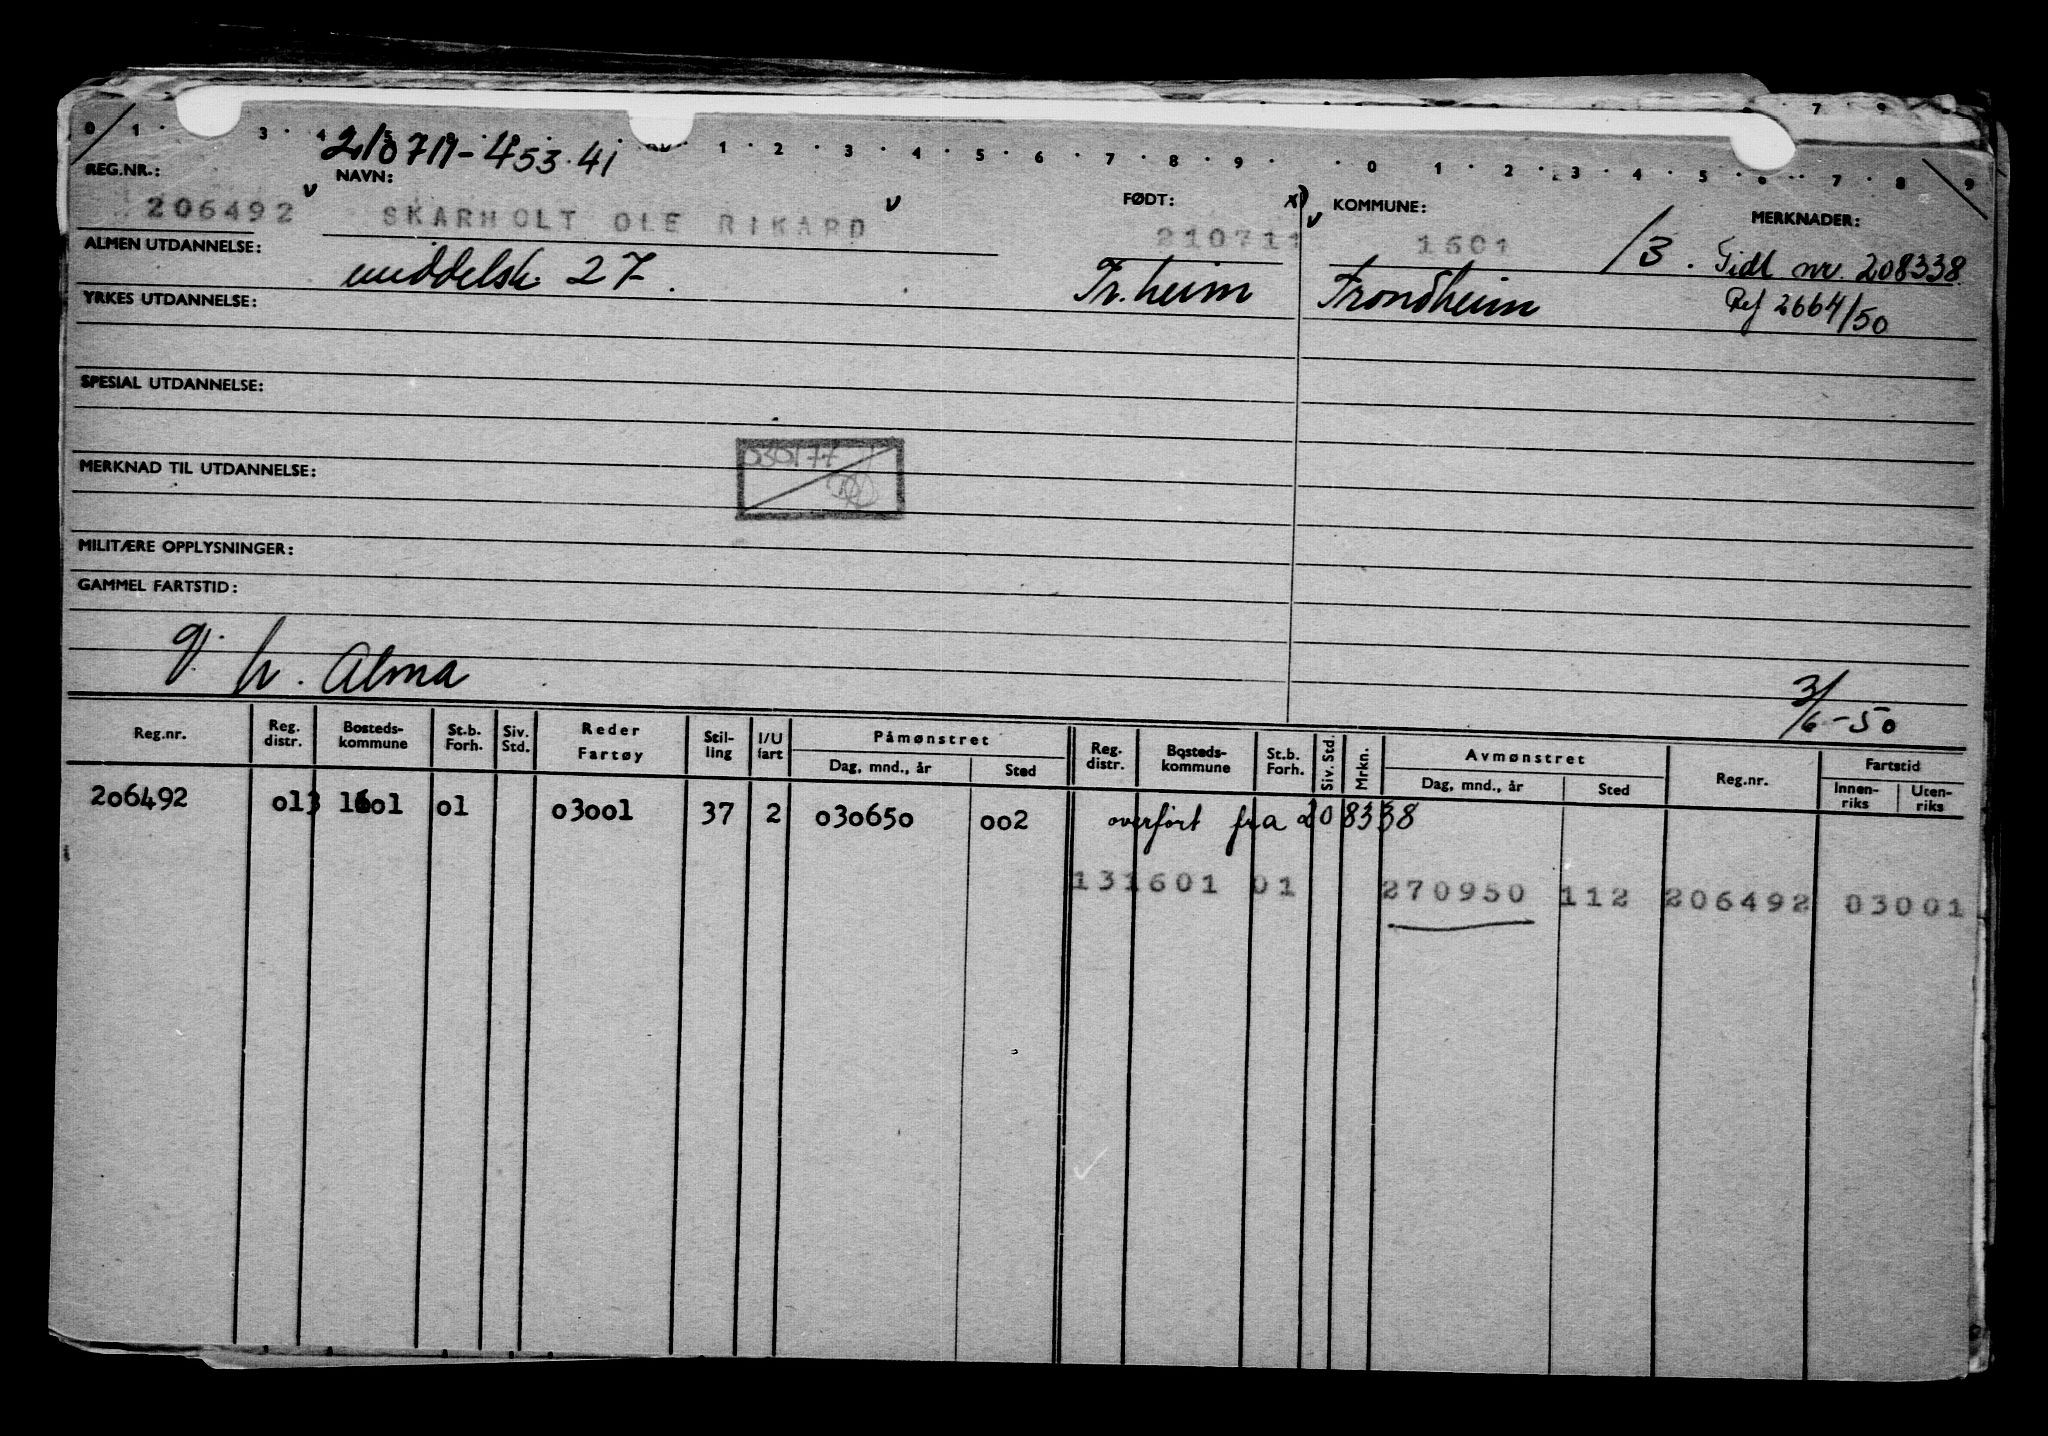 0 1 3 4 5 1 2 3 4 5 6 7 8 9 0 1 2 3 4 5 6 7 8 9
210711-453.41
REG.NR.: NAVN: FØDT: x) KOMMUNE: MERKNADER:
206492 v SKARHOLT OLE RIKARD v 210711 v 1601 13. Tidl nr. 208338
ALMEN UTDANNELSE: middelsk. 27. Tr.heim Trondheim Ref 2664/50
YRKES UTDANNELSE:
SPESIAL UTDANNELSE:
MERKNAD TIL UTDANNELSE:
030177
MILITÆRE OPPLYSNINGER:
GAMMEL FARTSTID:
g. h. Alma 3/6-50
Reg.nr. Reg. distr. Bosteds-kommune St.b. Forh. Siv. Std. Reder Fartøy Stil-ling I/U fart Påmønstret Dag, mnd., år Sted Reg. distr. Bosteds-kommune St.b. Forh. Siv. Std. Mrkn. Avmønstret Dag, mnd., år Sted Reg.nr. Fartstid Innen-riks Uten-riks
206492 013 1601 01 03001 37 2 030650 002 overført fra 208338
131601 01 270950 112 206492 03001